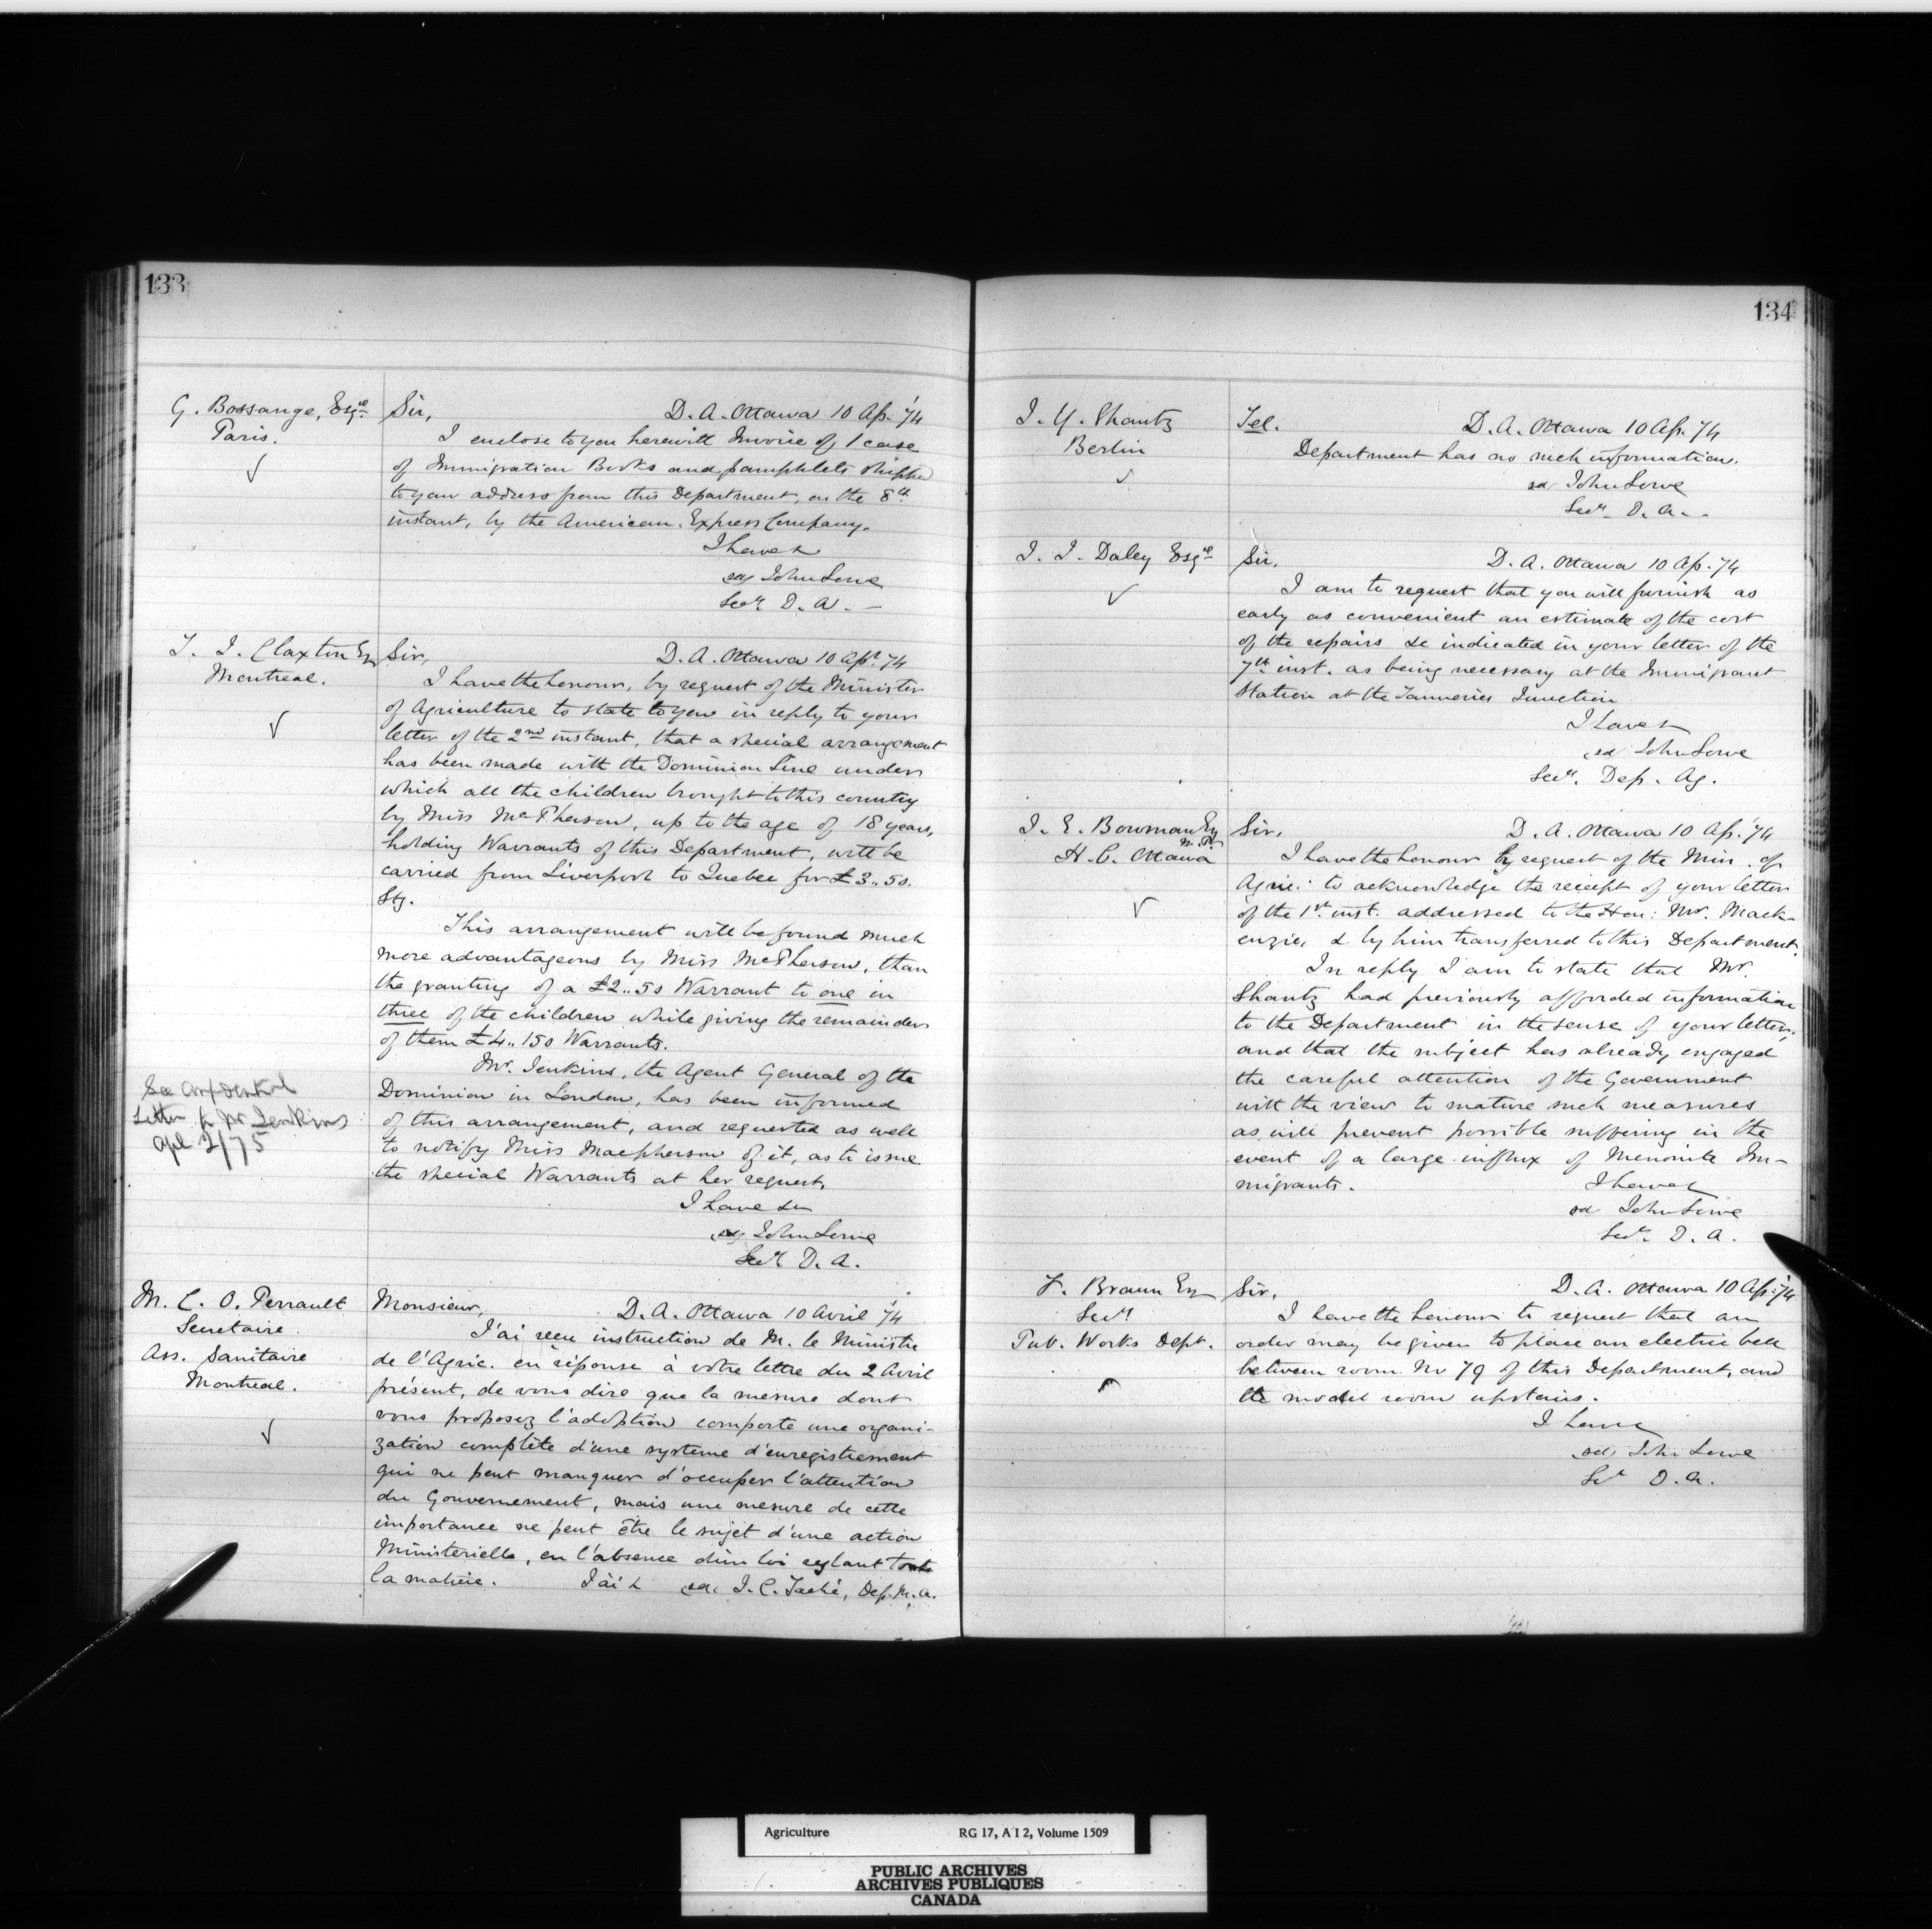 133
G. Bossange, Esqre
Paris.
Sir, D. A. Ottawa 10 Ap. '74
I enclose to you herewith Invoice of 1 case
of Immigration Books and pamphlets shipped
to your address from this Department, on the 8th
instant, by the American Express Company.
I have &
sd/ John Lowe
Secy D. A. —
T. J. Claxton Esq
Montreal.
Sir, D. A. Ottawa 10 Apl. 74
I have the honour, by request of the Minister
of Agriculture to state to you in reply to your
letter of the 2nd instant, that a special arrangement
has been made with the Dominion Line under
which all the children brought to this country
by Miss McPherson, up to the age of 18 years,
holding Warrants of this Department, will be
carried from Liverpool to Quebec for £3..5s.
Stg.
This arrangement will be found much
more advantageous by Miss McPherson, than
the granting of a £2..5s Warrant to one in
three of the children while giving the remainder
of them £4..15s Warrants.
Mr. Jenkins, the Agent General of the
Dominion in London, has been informed
of this arrangement, and requested as well
to notify Miss Macpherson of it, as to issue
the special Warrants at her request.
I have &c
sd/ John Lowe
Secy D. A.
See confidential
Letter to Mr Jenkins
Apl 2/75
M. C. O. Perrault
Secretaire
Ass. Sanitaire
Montreal.
Monsieur, D. A. Ottawa 10 Avril '74
J'ai recu instruction de M. le Ministre
de l'Agric. en réponse à votre lettre du 2 Avril
présent, de vous dire que la mesure dont
vous proposez l'adoption comporte une organi-
zation complète d'une systeme d'enregistrement
qui ne peut manquer d'occuper l'attention
du Gouvernement, mais une mesure de cette
importance ne peut être le sujet d'une action
Ministerielle, en l'absence d'un loi reglant toute
la matiere. J'ai & sd. J. C. Taché, Dep. M. A.
134
J. Y. Shantz
Berlin
Tel. D. A. Ottawa 10 Ap. 74
Department has no such information.
sd/ John Lowe
Secy. D. A. -
J. J. Daley Esqre
Sir, D. A. Ottawa 10 Ap. 74
I am to request that you will furnish as
early as convenient an estimate of the cost
of the repairs &c indicated in your letter of the
7th inst. as being necessary at the Immigrant
Station at the Tanneries Junction
I have &
sd John Lowe
Secy. Dep. Ag.
J. E. Bowman Esq
M.P.
H. C. Ottawa
Sir, D. A. Ottawa 10 Ap. '74
I have the honour by request of the Min. of
Agric. to acknowledge the receipt of your letter
of the 1st. inst. addressed to the Hon: Mr. Mack-
enzie, & by him transferred to this Department.
In reply I am to state that Mr.
Shantz had previously afforded information
to the Department in the sense of your letter,
and that the subject has already engaged
the careful attention of the Government
with the view to mature such measures
as will prevent possible suffering in the
event of a large influx of Menonite Im-
migrants. I have &
sd John Lowe
Secy. D. A.
F. Braun Esq
Secy
Pub. Works Dept.
Sir, D. A. Ottawa 10 Ap: '74
I have the honour to request that an
order may be given to place an electric bell
between room No 79 of this Department, and
the model room upstairs.
I have
sd/ John Lowe
Secy D. A.
Agriculture RG 17, A I 2, Volume 1509
PUBLIC ARCHIVES
ARCHIVES PUBLIQUES
CANADA